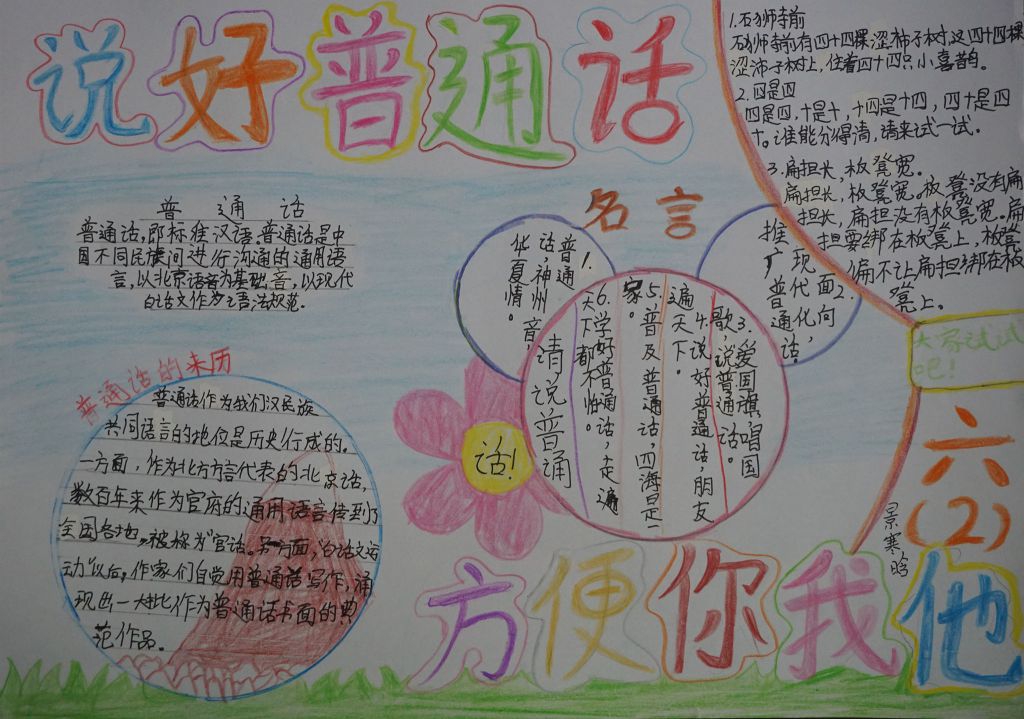 说好普通话
普通话
普通话，即标准汉语。普通话是中
国不同民族间进行沟通的通用语
言，以北京语音为基础音，以现代
白话文作为语法规范。
普通话的来历
普通话作为我们汉民族
共同语言的地位是历史形成的。
一方面，作为北方方言代表的北京话，
数百年来作为官府的通用语言传到了
全国各地，被称为"官话。另一方面，"白话文运
动"以后，作家们自觉用普通话写作，涌
现出一大批作为普通话书面的典
范作品。
名言
1.普通
话，神州音，
华夏情。
2.面向
现代化，
推广普通话。
3.爱国旗，唱国
歌，说普通话。
4.说好普通话，朋友
遍天下。
5.普及普通话，四海是一
家。
6.学好普通话，走遍
天下都不怕。
请说普通
话！
1.石狮寺前
石狮寺前有四十四棵涩柿子树，这四十四棵
涩柿子树上，住着四十四只小喜鹊。
2.四是四
四是四，十是十，十四是十四，四十是四
十。谁能分得清，请来试一试。
3.扁担长，板凳宽。
扁担长，板凳宽。板凳没有扁
担长，扁担没有板凳宽。扁
担要绑在板凳上，板凳
偏不让扁担绑在板
凳上。
大家试试
吧！
六
(2)
景寒晗
方便你我他